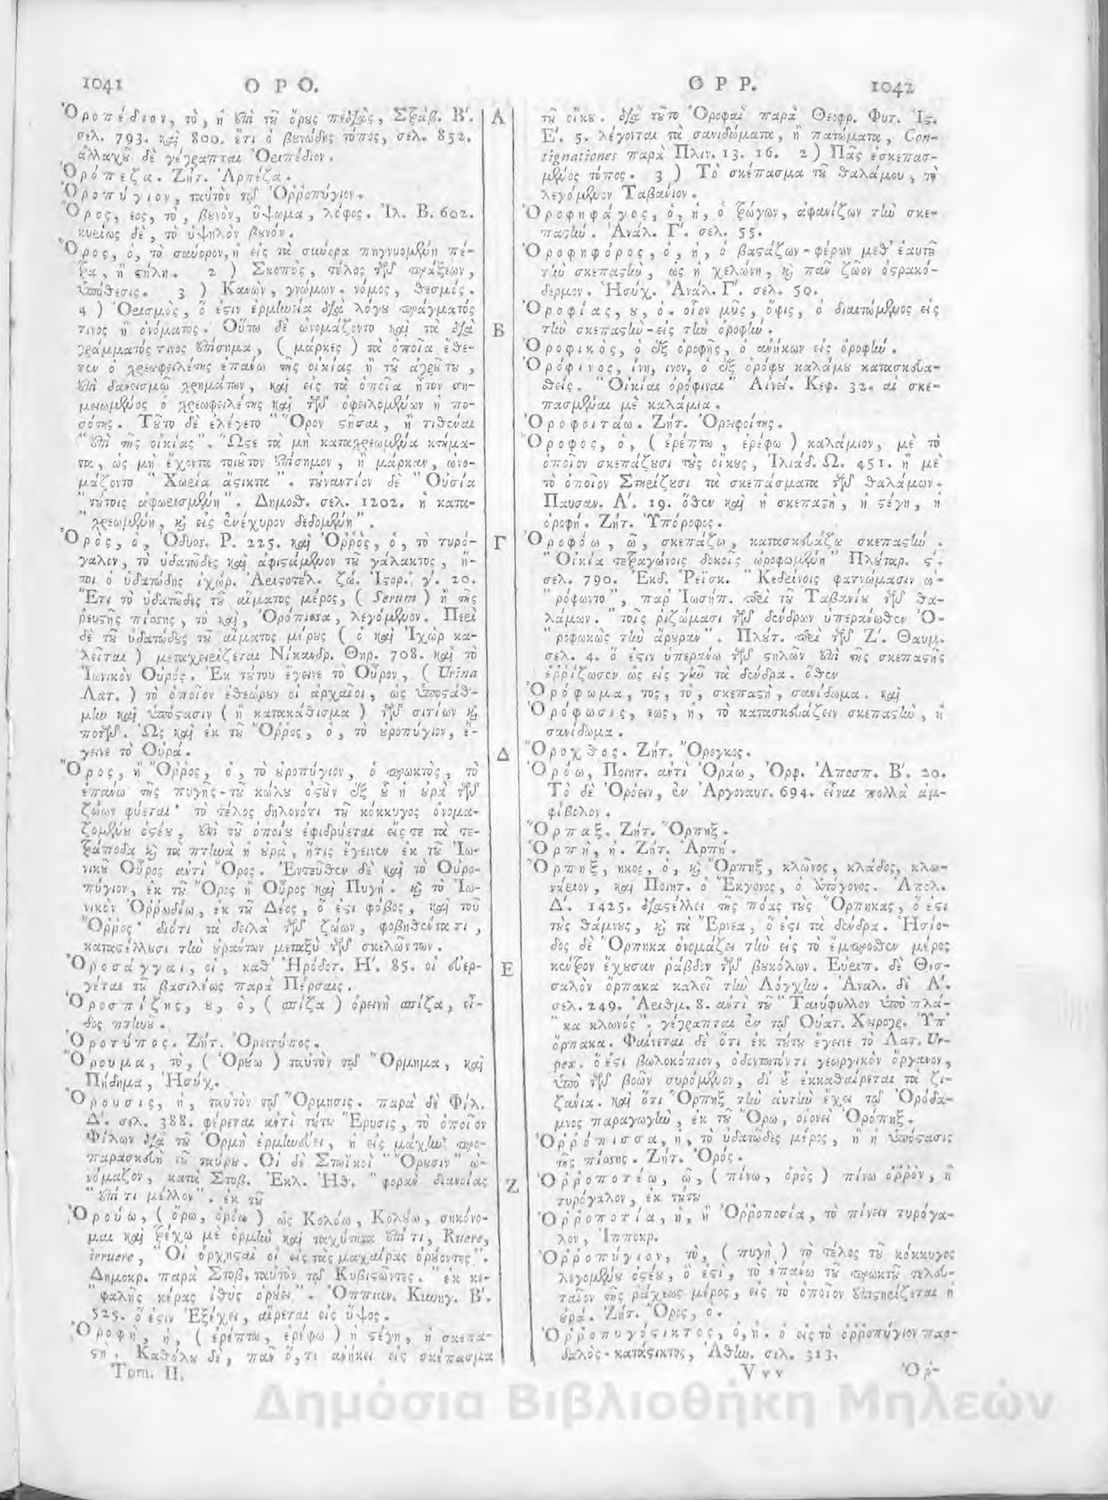 1041 Ο Ρ Ο.
Ὀροπέδιον, τὸ, ἡ ἐπὶ τοῦ ὄρους πεδιὰς, Στράβ. Β΄.
σελ. 793. καὶ 800. ἔτι ὁ βουνώδης τόπος, σελ. 852.
ἀλλαχοῦ δὲ γέγραπται Ὀρειπέδιον.
Ὀρόπεζα. Ζήτ. Ἀρπέζα.
Ὀροπύγιον, ταυτὸν τῷ Ὀρροπύγιον.
Ὄρος, εος, τὸ, βουνὸν, ὕψωμα, λόφος. Ἰλ. Β. 602.
κυρίως δὲ, τὸ ὑψηλὸν βουνόν.
θεσις. 3 ) Κανὼν, γνώμων. νόμος, θεσμός.
γράμματός τινος ἐπίσημα, ( μάρκες ) τὰ ὁποῖα ἔθε-
τεν ὁ χρεωφειλέτης ἐπάνω τῆς οἰκίας ἢ τοῦ ἀγροῦ του,
ἐπὶ δανεισμῷ χρημάτων, καὶ εἰς τὰ ὁποῖα ἦτον ση-
μειωμένος ὁ χρεωφειλέτης καὶ τῶν ὀφειλομένων ἡ πο-
σότης. Τοῦτο δὲ ἐλέγετο "Ὅρον στῆσαι, ἢ τιθέναι
"ἐπὶ τῆς οἰκίας". Ὥστε τὰ μὴ καταχρεωμένα κτήμα-
τα, ὡς μὴ ἔχοντα τοιοῦτον ἐπίσημον, ἢ μάρκαν, ὠνο-
μάζοντο "Χωρία ἄστικτα". τουναντίον δὲ "Οὐσία
"τούτοις ἀφωρισμένη". Δημοσθ. σελ. 1202. ἡ κατα-
"χρεωμένη, καὶ εἰς ἐνέχυρον δεδομένη".
Ὀρὸς, ὁ, Ὀδυσ. Ρ. 225. καὶ Ὀρρὸς, ὁ, τὸ τυρό-
γαλον, τὸ ὑδατῶδες καὶ ἀφιστάμενον τοῦ γάλακτος, ἤ-
τοι ὁ ὑδατώδης ἰχώρ. Ἀριστοτέλ. ζώ. Ἱστορ. γ΄. 20.
Ἔτι τὸ ὑδατῶδες τοῦ αἵματος μέρος, ( Serum ) ἢ τῆς
ῥευστῆς πίσσης, τὸ καὶ, Ὀρόπισσα, λεγόμενον. Περὶ
δὲ τοῦ ὑδατώδους τοῦ αἵματος μέρους ( ὃ καὶ Ἰχὼρ κα-
λεῖται ) μεταχειρίζεται Νίκανδρ. Θηρ. 708. καὶ τὸ
Ἰωνικὸν Οὐρός. Ἐκ τούτου ἔγεινε τὸ Οὖρον, ( Urina
Λατ. ) τὸ ὁποῖον ἐθεώρουν οἱ ἀρχαῖοι, ὡς ὑποστάθ-
μην καὶ ὑπόστασιν ( ἢ κατακάθισμα ) τῶν σιτίων καὶ
ποτῶν. Ὡς καὶ ἐκ τοῦ Ὄρρος, ὁ, τὸ οὐροπύγιον, ἔ-
γεινε τὸ Οὐρά.
Ὄρος, ἢ Ὄρρος, ὁ, τὸ οὐροπύγιον, ὁ πρωκτὸς, τὸ
ἐπάνω τῆς πυγῆς - τοῦ κώλου ὀστοῦν ἐξ οὗ ἡ οὐρὰ τῶν
ζώων φύεται· τὸ τέλος δηλονότι τοῦ κόκκυγος ὀνομα-
ζομένου ὀστέου, ἐπὶ τοῦ ὁποίου ἐφιδρύεται εἴς τε τὰ τε-
τράποδα καὶ τὰ πτηνὰ ἡ οὐρὰ, ἥτις ἔγεινεν ἐκ τοῦ Ἰω-
νικοῦ Οὖρος ἀντὶ Ὄρος. Ἐντεῦθεν δὲ καὶ τὸ Οὐρο-
πύγιον, ἐκ τοῦ Ὄρος ἢ Οὖρος καὶ Πυγή. καὶ τὸ Ἰω-
νικὸν Ὀρρωδέω, ἐκ τοῦ Δέος, ὅ ἐστι φόβος, καὶ τοῦ
Ὄρρος· διότι τὰ δειλὰ τῶν ζώων, φοβηθέντα τι,
καταστέλλουσι τὴν οὐράν των μεταξὺ τῶν σκελῶν των.
Ὀροσάγγαι, οἱ, καθ' Ἡρόδοτ. Η΄. 85. οἱ εὐερ-
γέται τοῦ βασιλέως παρὰ Πέρσαις.
Ὀροσπίζης, ου, ὁ, ( σπίζα ) ὀρεινὴ σπίζα, εἶ-
δος πτηνοῦ.
Ὀροτύπος. Ζήτ. Ὀρειτύπος.
Ὄρουμα, το, ( Ὀρούω ) ταὐτὸν τῷ Ὅρμημα, καὶ
Πήδημα, Ἡσύχ.
Ὄρουσις, ἡ, ταὐτὸν τῷ Ὅρμησις. παρὰ δὲ Φίλ.
Δ΄. σελ. 388. φέρεται ἀντὶ τούτου Ἔρυσις, τὸ ὁποῖον
Ὀρούω, ( ὄρω, ὀρόω ) ὡς Κολόω, Κολούω, σηκόνο-
μαι καὶ τρέχω μὲ ὁρμὴν καὶ ταχύτητα ἐπί τι, Ruere,
irruere, "Οἱ ὀρχησταὶ οἱ εἰς τὰς μαχαίρας ὀρούοντες".
Δημοκρ. παρὰ Στοβ. ταὐτὸν τῷ Κυβιστῶντες. ἐκ κε-
"φαλῆς κέρας ἰθὺς ὀρούει". Ὀππιαν. Κυνηγ. Β΄.
525. ὅ ἐστιν Ἐξέχει, αἴρεται εἰς ὕψος.
Ὀροφὴ, ἡ, ( ἐρέπτω, ἐρέφω ) ἡ στέγη, ἡ σκεπα-
στή. Καθόλου δὲ, πᾶν ὅ,τι ἀνήκει εἰς σκέπασμα
Tom. II.
Α
Β
Γ
Δ
Ε
Ζ
Ο Ρ Ρ. 1042
τοῦ οἴκου. διὰ τοῦτο Ὀροφαὶ παρὰ Θεοφρ. Φυτ. Ἱστ.
Ε΄. 5. λέγονται τὰ σανιδώματα, ἢ πατώματα, Con-
tignationes παρὰ Πλιν. 13. 16. 2 ) Πᾶς ἐσκεπασ-
μένος τόπος. 3 ) Τὸ σκέπασμα τοῦ θαλάμου, τὸ
λεγόμενον Ταβανίον.
Ὀροφηφάγος, ὁ, ἡ, ὁ τρώγων, ἀφανίζων τὴν σκε-
παστήν. Ἀνάλ. Γ΄. σελ. 55.
Ὀροφηφόρος, ὁ, ἡ, ὁ βαστάζων - φέρων μεθ' ἑαυτοῦ
τὴν σκεπαστὴν, ὡς ἡ χελώνη, καὶ πᾶν ζῶον ὀστρακό-
δερμον. Ἡσύχ. Ἀνάλ. Γ΄. σελ. 50.
Ὀροφίας, ου, ὁ. οἷον μῦς, ὄφις, ὁ διαιτώμενος εἰς
τὴν σκεπαστὴν - εἰς τὴν ὀροφήν.
Ὀροφικὸς, ὁ ἐξ ὀροφῆς, ὁ ἀνήκων εἰς ὀροφήν.
Ὀρόφινος, ίνη, ινον, ὁ ἐξ ὀρόφου καλάμου κατασκευα-
σθείς. "Οἰκίαι ὀρόφιναι" Αἰνεί. Κεφ. 32. αἱ σκε-
πασμέναι μὲ καλάμια.
Ὀροφοιτάω. Ζήτ. Ὀρειφοίτης.
Ὄροφος, ὁ, ( ἐρέπτω, ἐρέφω ) καλάμιον, μὲ τὸ
ὁποῖον σκεπάζουσι τοὺς οἴκους, Ἰλιάδ. Ω. 451. ἢ μὲ
τὸ ὁποῖον Στηρίζουσι τὰ σκεπάσματα τῶν θαλάμων.
Παυσαν. Α΄. 19. ὅθεν καὶ ἡ σκεπαστὴ, ἡ στέγη, ἡ
ὀροφή. Ζήτ. Ὑπόροφος.
Ὀροφόω, ῶ, σκεπάζω, κατασκευάζω σκεπαστήν.
"Οἰκία τετραγώνοις δοκοῖς ὠροφωμένη" Πλούταρ. ς΄.
σελ. 790. Ἐκδ. Ῥείσκ. "Κεδρίνοις φατνώμασιν ὠ-
"ρόφωντο", παρ' Ἰωσήπ. περὶ τοῦ Ταβανίου τῶν θα-
λάμων. "τοῖς ῥιζώμασι τῶν δένδρων ὑπεράνωθεν Ὀ-
"ροφικῶς τὴν ἄρουραν". Πλούτ. περὶ τῶν Ζ΄. Θαυμ.
σελ. 4. ὅ ἐστιν ὑπεράνω τῶν στηλῶν ἐπὶ τῆς σκεπαστῆς
ἐρρίζωσεν ὡς εἰς γῆν τὰ δένδρα. ὅθεν
Ὀρόφωμα, τος, τὸ, σκεπαστὴ, σανίδωμα. καὶ
Ὀρόφωσις, εως, ἡ, τὸ κατασκευάζειν σκεπαστὴν, ἢ
σανίδωμα.
Ὄροχθος. Ζήτ. Ὄρεγκος.
Ὀρόω, Ποιητ. ἀντὶ Ὁράω, Ὀρφ. Ἀποσπ. Β΄. 20.
Τὸ δὲ Ὁρόειν, ἐν Ἀργοναυτ. 694. εἶναι πολλὰ ἀμ-
φίβολον.
Ὄρπαξ. Ζήτ. Ὄρπηξ.
Ὄρπη, ἡ. Ζήτ. Ἅρπη.
Ὄρπηξ, ηκος, ὁ, καὶ Ὅρπηξ, κλῶνος, κλάδος, κλω-
νάριον, καὶ Ποιητ. ὁ Ἔκγονος, ὁ ἀπόγονος. Ἀπολ.
Δ΄. 1425. διαστέλλει τῆς πόας τοὺς Ὄρπηκας, ὅ ἐστι
τοὺς θάμνους, καὶ τὰ Ἔρνεα, ὅ ἐστι τὰ δένδρα. Ἡσίο-
δος δὲ Ὄρπηκα ὀνομάζει τὴν εἰς τὸ ἔμπροσθεν μέρος
κέντρον ἔχουσαν ῥάβδον τῶν βουκόλων. Εὐριπ. δὲ Θεσ-
σαλὸν ὅρπακα καλεῖ τὴν Λόγχην. Ἀναλ. δὲ Α΄.
σελ. 249. Ἀριθμ. 8. ἀντὶ τοῦ "Τανύφυλλον ὑπὸ πλά-
"κα κλωνός". γέγραπται ἐν τῷ Οὐατ. Χειρογρ. Ὑπ'
ὄρπακα. Φαίνεται δὲ ὅτι ἐκ τούτου ἔγεινε τὸ Λατ. Ur-
pex. ὅ ἐστι βωλοκόπιον, ὀδοντωτόν τι γεωργικὸν ὄργανον,
ὑπὸ τῶν βοῶν συρόμενον, δι' οὗ ἐκκαθαίρεται τὰ ζι-
ζάνια. καὶ ὅτι Ὄρπηξ τὴν αὐτὴν ἔχει τῷ Ὀρόδα-
μνος παραγωγὴν, ἐκ τοῦ Ὄρω, οἱονεὶ Ὀρόπηξ.
Ὀρρόπισσα, ἡ, τὸ ὑδατῶδες μέρος, ἢ ἡ ὑπόστασις
τῆς πίσσης. Ζήτ. Ὀρός.
Ὀρροποτέω, ῶ, ( πίνω, ὀρὸς ) πίνω ὀρρὸν, ἢ
τυρόγαλον, ἐκ τούτου
Ὀρροποτία, ἡ, ἢ Ὀρροποσία, τὸ πίνειν τυρόγα-
λον, Ἱπποκρ.
Ὀρροπύγιον, τὸ, ( πυγὴ ) τὸ τέλος τοῦ κόκκυγος
λεγομένου ὀστέου, ὅ ἐστι, τὸ ἐπάνω τοῦ πρωκτοῦ τελευ-
ταῖον τῆς ῥάχεως μέρος, εἰς τὸ ὁποῖον ἐπιστηρίζεται ἡ
οὐρά. Ζήτ. Ὄρος, ὁ.
Ὀρροπυγόστικτος, ὁ, ἡ. ὁ εἰς τὸ ὀρροπύγιον παρ-
δαλὸς - κατάστικτος, Ἀθήν. σελ. 313.
V v v Ὀρ-
Δημόσια Βιβλιοθήκη Μηλεών